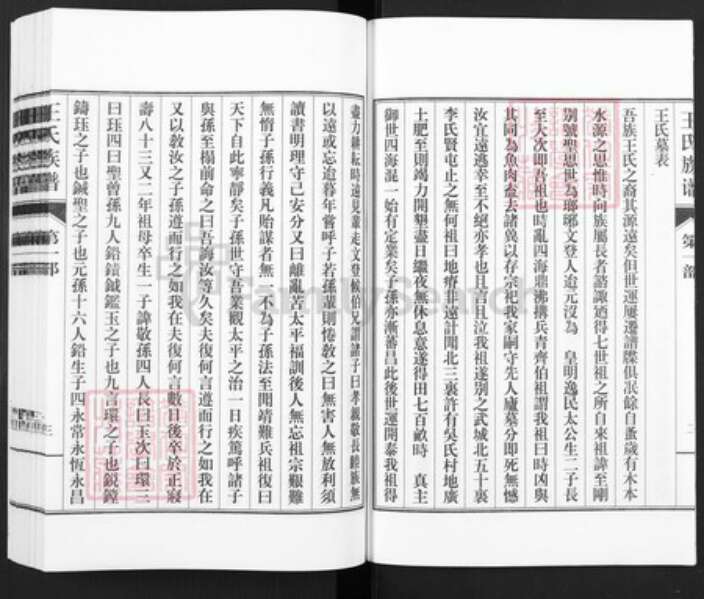 王氏族譜
第一部
王氏墓表
吾族王氏之裔其源遠矣但世運屢遷譜牒俱泯餘自蚤歲有木本
水源之思惟時向族屬長者諮諏迺得七世祖之所自來祖諱至剛
別號聖思世為瑯琊文登人逾元沒為 皇明逸民太公生二子長
至大次即吾祖也時亂四海鼎沸搆兵青齊伯祖謂我祖曰時凶與
其同為魚肉盍去諸冀以存宗祀我家嗣守先人廬墓分即死無憾
汝宜遠逃幸至不絕亦孝也且言且泣我祖遂別之武城北五十裏
李氏賢屯止之無何祖曰地瘠非遠計聞北三裏許有吳氏村地廣
土肥至則竭力開墾盡日繼夜無休息意遂得田七百畝時 真主
御世四海混一始有定業矣子孫亦漸蕃昌此後世運開泰我祖得
盡力耕耘時遠見董走文登候伯兄謂諸子曰孝親敬長睦族無
以遠或忘逾暮年嘗呼子若孫輩則惓教之曰無害人無放利須
讀書明理守己安分又曰離亂苦太平福訓後人無忘祖宗艱難
無惰子孫行義凡貽謀者無一不為子孫法至閒靖難兵祖復曰
天下自此寧靜矣子孫世守吾業觀太平之治一日疾篤呼諸子
與孫至榻前命之曰吾誨汝等久矣夫復何言遵而行之如我在
又以教汝之子孫遵而行之如我在夫復何言數日後卒於正寢
壽八十三又二年祖母卒生一子諱敬孫四人長曰玉次曰環三
曰珏四曰聖曾孫九人鉛鐀鍼鑑玉之子也九言環之子也鏡鏜
鑄珏之子也鍼聖之子也元孫十六人鉛生子四永常永恆永昌
王氏族譜
第一部
FamilySearch